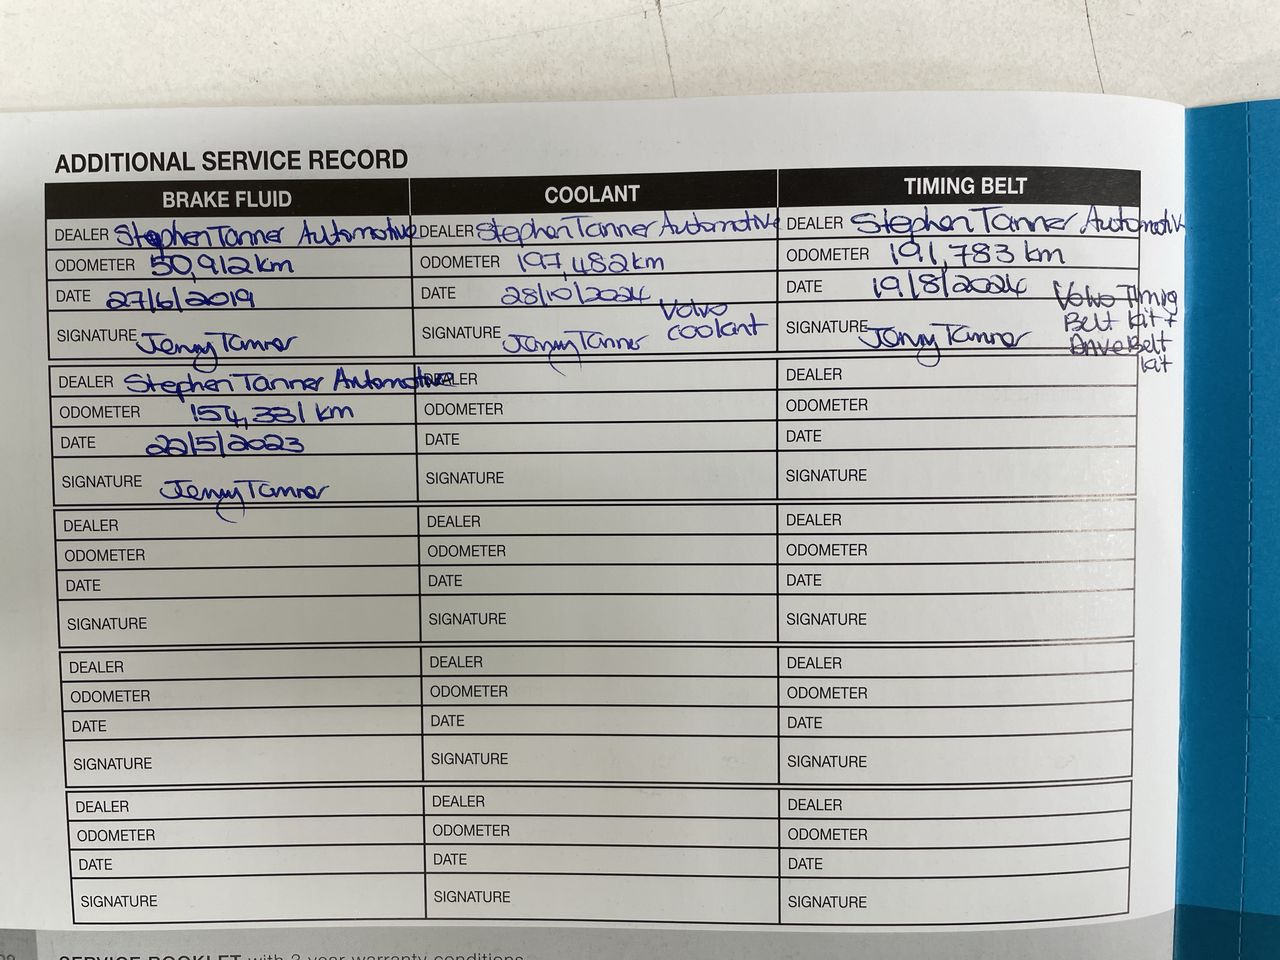 ADDITIONAL SERVICE RECORD
BRAKE FLUID COOLANT TIMING BELT
DEALER Stephen Tanner Automotive DEALER Stephen Tanner Automotive DEALER Stephen Tanner Automotive
ODOMETER 50,912 km ODOMETER 197,482 km ODOMETER 191,783 km
DATE 27/6/2019 DATE 28/10/2024 DATE 19/8/2024
SIGNATURE Jenny Tanner SIGNATURE Jenny Tanner Volvo coolant SIGNATURE Jenny Tanner Volvo Timing
Belt kit +
Drive Belt
kit
DEALER Stephen Tanner Automotive DEALER DEALER
ODOMETER 154,331 km ODOMETER ODOMETER
DATE 22/5/2023 DATE DATE
SIGNATURE Jenny Tanner SIGNATURE SIGNATURE
DEALER DEALER DEALER
ODOMETER ODOMETER ODOMETER
DATE DATE DATE
SIGNATURE SIGNATURE SIGNATURE
DEALER DEALER DEALER
ODOMETER ODOMETER ODOMETER
DATE DATE DATE
SIGNATURE SIGNATURE SIGNATURE
DEALER DEALER DEALER
ODOMETER ODOMETER ODOMETER
DATE DATE DATE
SIGNATURE SIGNATURE SIGNATURE
SERVICE BOOKLET with 3 year warranty conditions